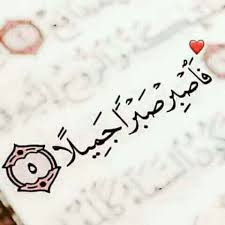 فَٱصۡبِرۡ صَبۡرٗا جَمِيلًا ٥